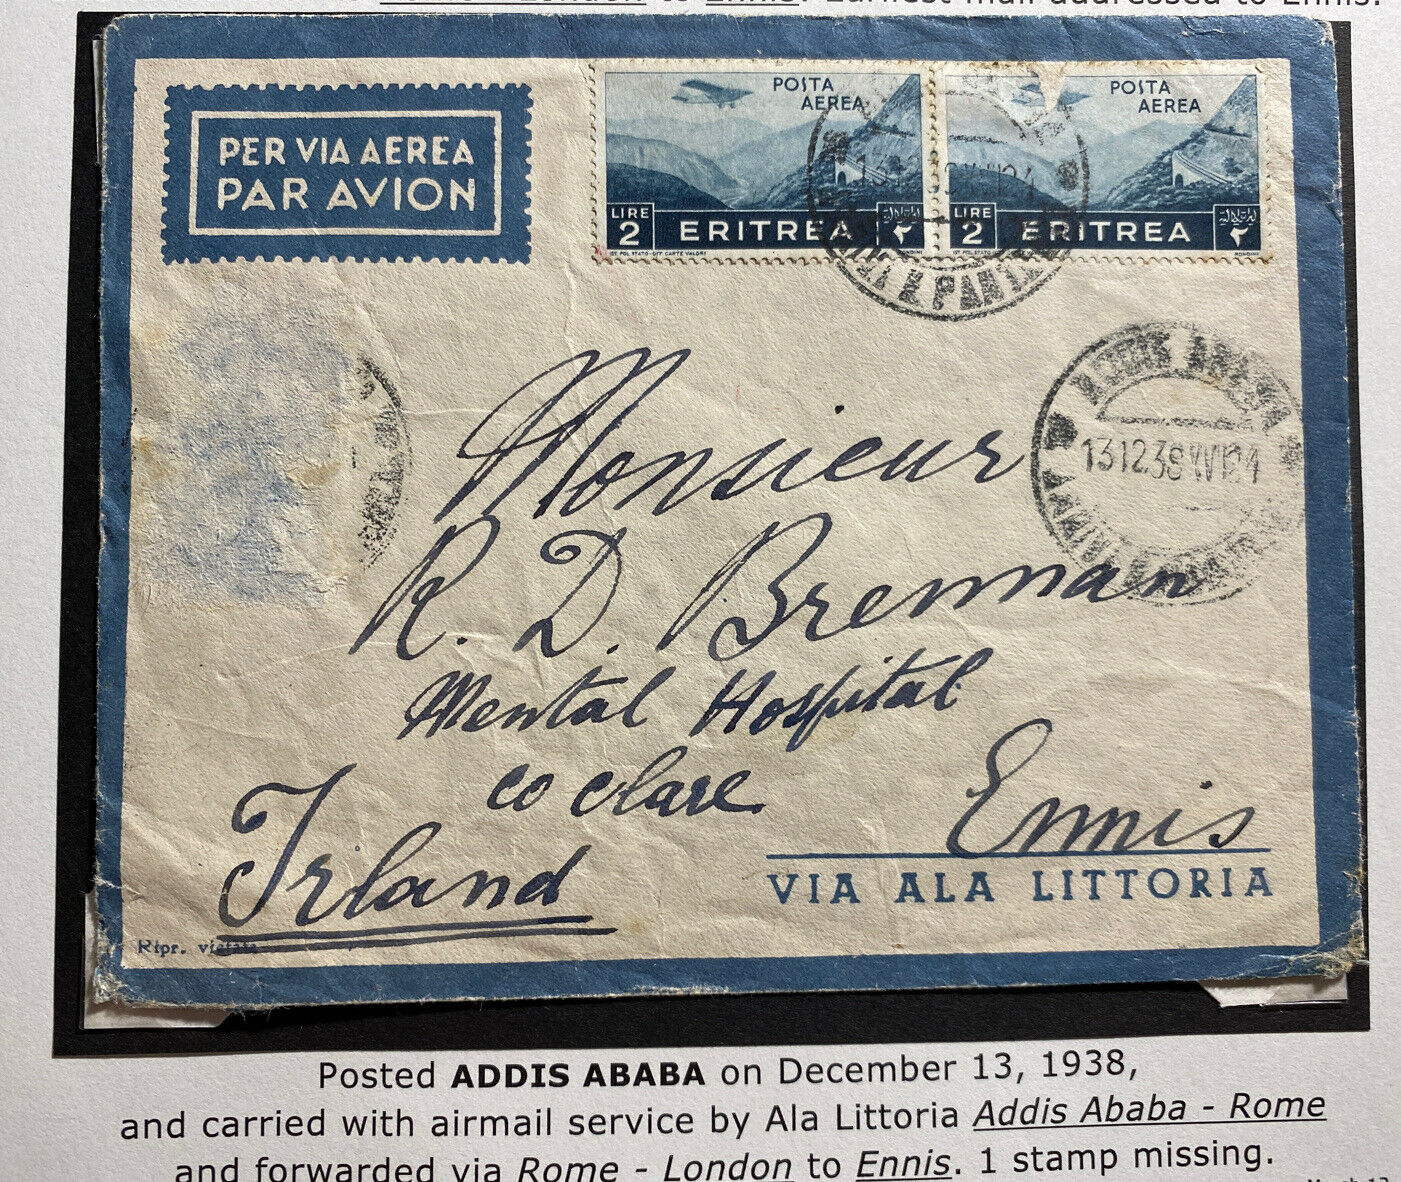 London to Ennis. Earliest mail addressed to Ennis.
PER VIA AEREA
PAR AVION
POSTA
AEREA
LIRE
2
ERITREA
٢
IST. POL. STATO-OFF. CARTE VALORI
RONDINI
POSTA
AEREA
LIRE
2
ERITREA
٢
IST. POL. STATO
RONDINI
ADDIS ABEBA
13 12 38 XVII 21
Monsieur
R. D. Brennan
Mental Hospital
co clare
Ennis
Irland
VIA ALA LITTORIA
Ripr. vietata
Posted ADDIS ABABA on December 13, 1938,
and carried with airmail service by Ala Littoria Addis Ababa - Rome
and forwarded via Rome - London to Ennis. 1 stamp missing.